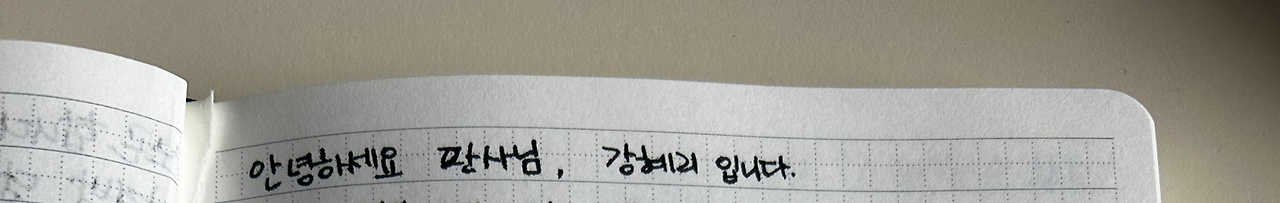 안녕하세요 판사님, 강혜리 입니다.